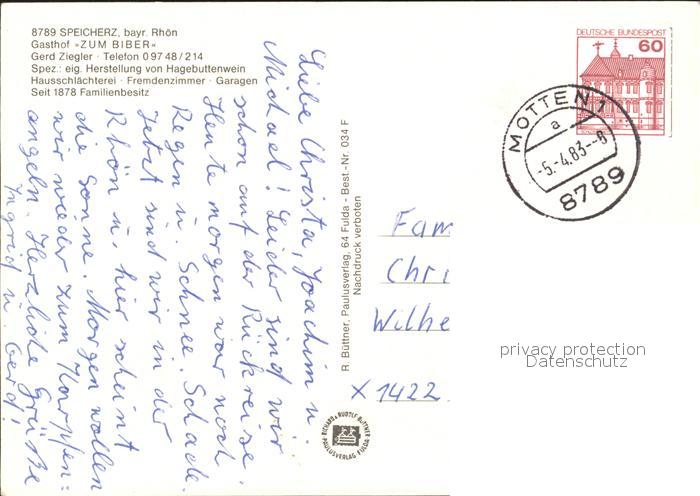 8789 SPEICHERZ, bayr. Rhön
Gasthof »ZUM BIBER«
Gerd Ziegler · Telefon 0 97 48 / 214
Spez.: eig. Herstellung von Hagebuttenwein
Hausschlächterei · Fremdenzimmer · Garagen
Seit 1878 Familienbesitz
Liebe Christa, Joachim u.
Michael! Leider sind wir
schon auf der Rückreise.
Heute morgen war noch
Regen u. Schnee. Schade.
Jetzt sind wir in der
Rhön u. hier scheint
die Sonne. Morgen wollen
wir wieder zum Karpfen=
angeln. Herzliche Grüße
Ingrid u. Gerd!
R. Büttner, Paulusverlag, 64 Fulda - Best.-Nr. 034 F
Nachdruck verboten
RICHARD & RUDOLF BÜTTNER
PAULUSVERLAG FULDA
DEUTSCHE BUNDESPOST
60
MOTTEN 1
a
-5.-4.83--8
8789
Fam
Chri
Wilhe
X 1422
privacy protection
Datenschutz